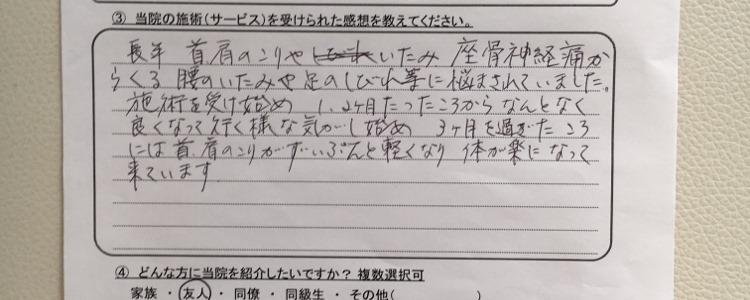 ③ 当院の施術(サービス)を受けられた感想を教えてください。
長年 首肩のこりや いたみ 座骨神経痛か
らくる 腰のいたみや足のしびれ等に悩まされていました。
施術を受け始め 1、2ヶ月たったころからなんとなく
良くなって行く様な気がし始め 3ヶ月を過ぎたころ
には首、肩のこりがずいぶんと軽くなり 体が楽になって
来ています
④ どんな方に当院を紹介したいですか? 複数選択可
家族 ・ 友人 ・ 同僚 ・ 同級生 ・ その他( )